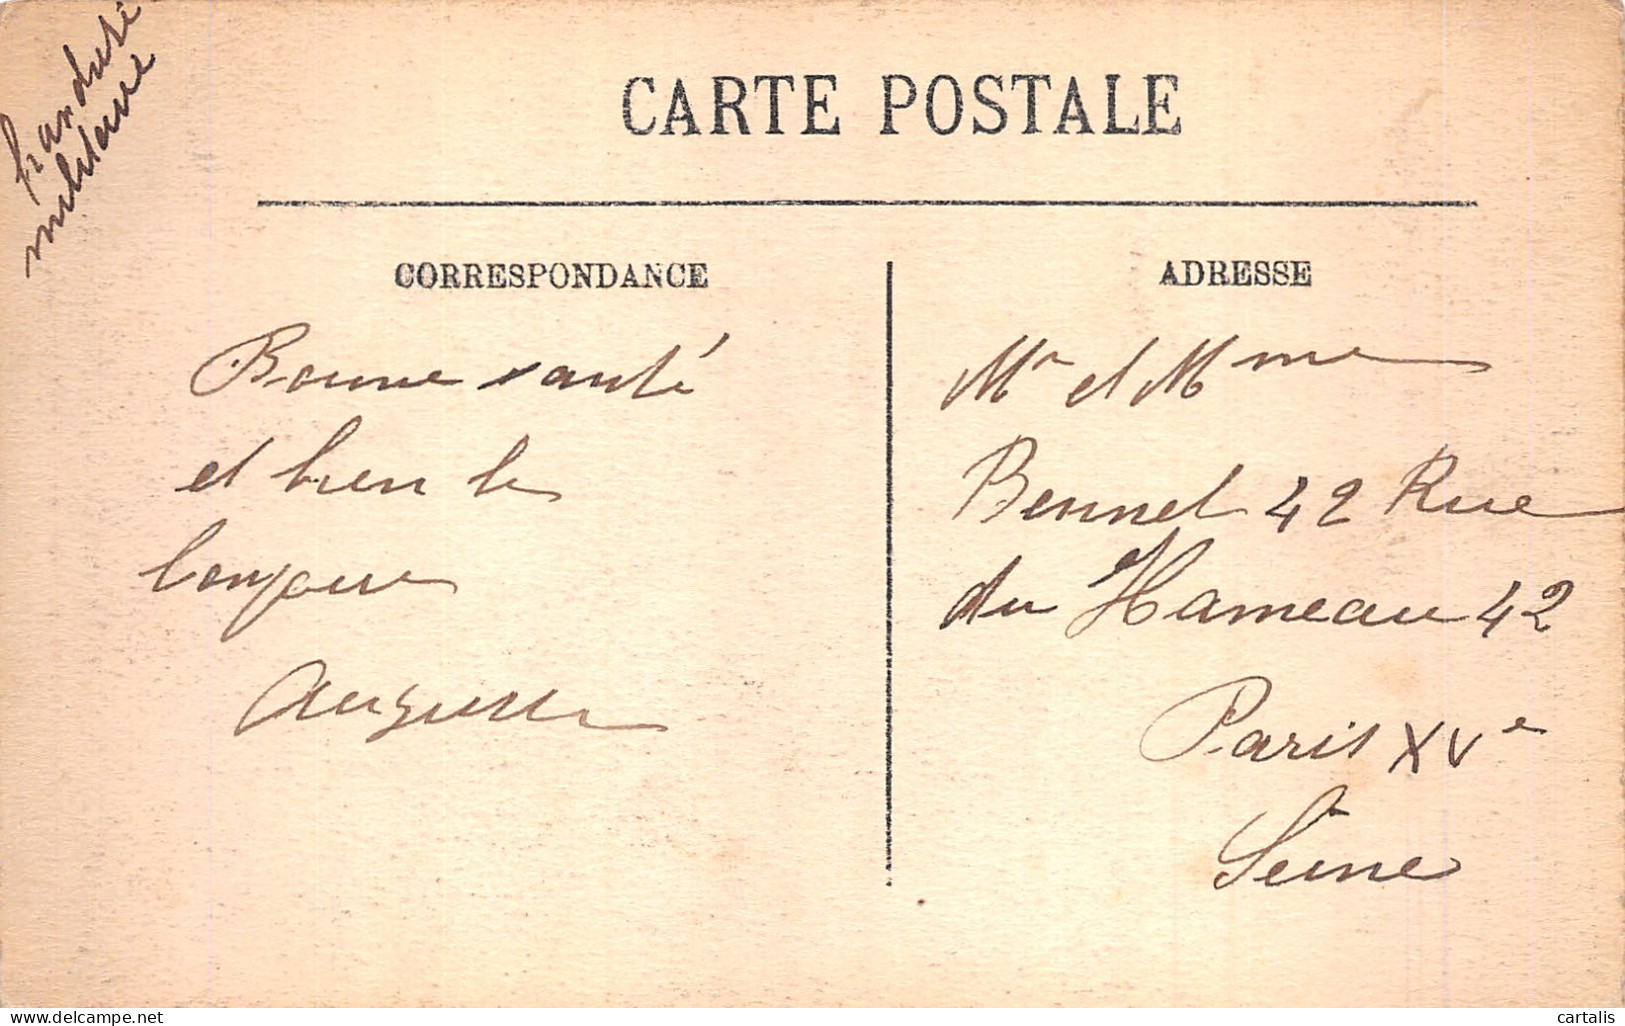 franchise
militaire
CARTE POSTALE
CORRESPONDANCE
Bonne santé
et bien le
bonjour
Auguste
ADRESSE
Mr et Mme
Bennet 42 Rue
du Hameau 42
Paris XVe
Seine
www.delcampe.net
cartalis